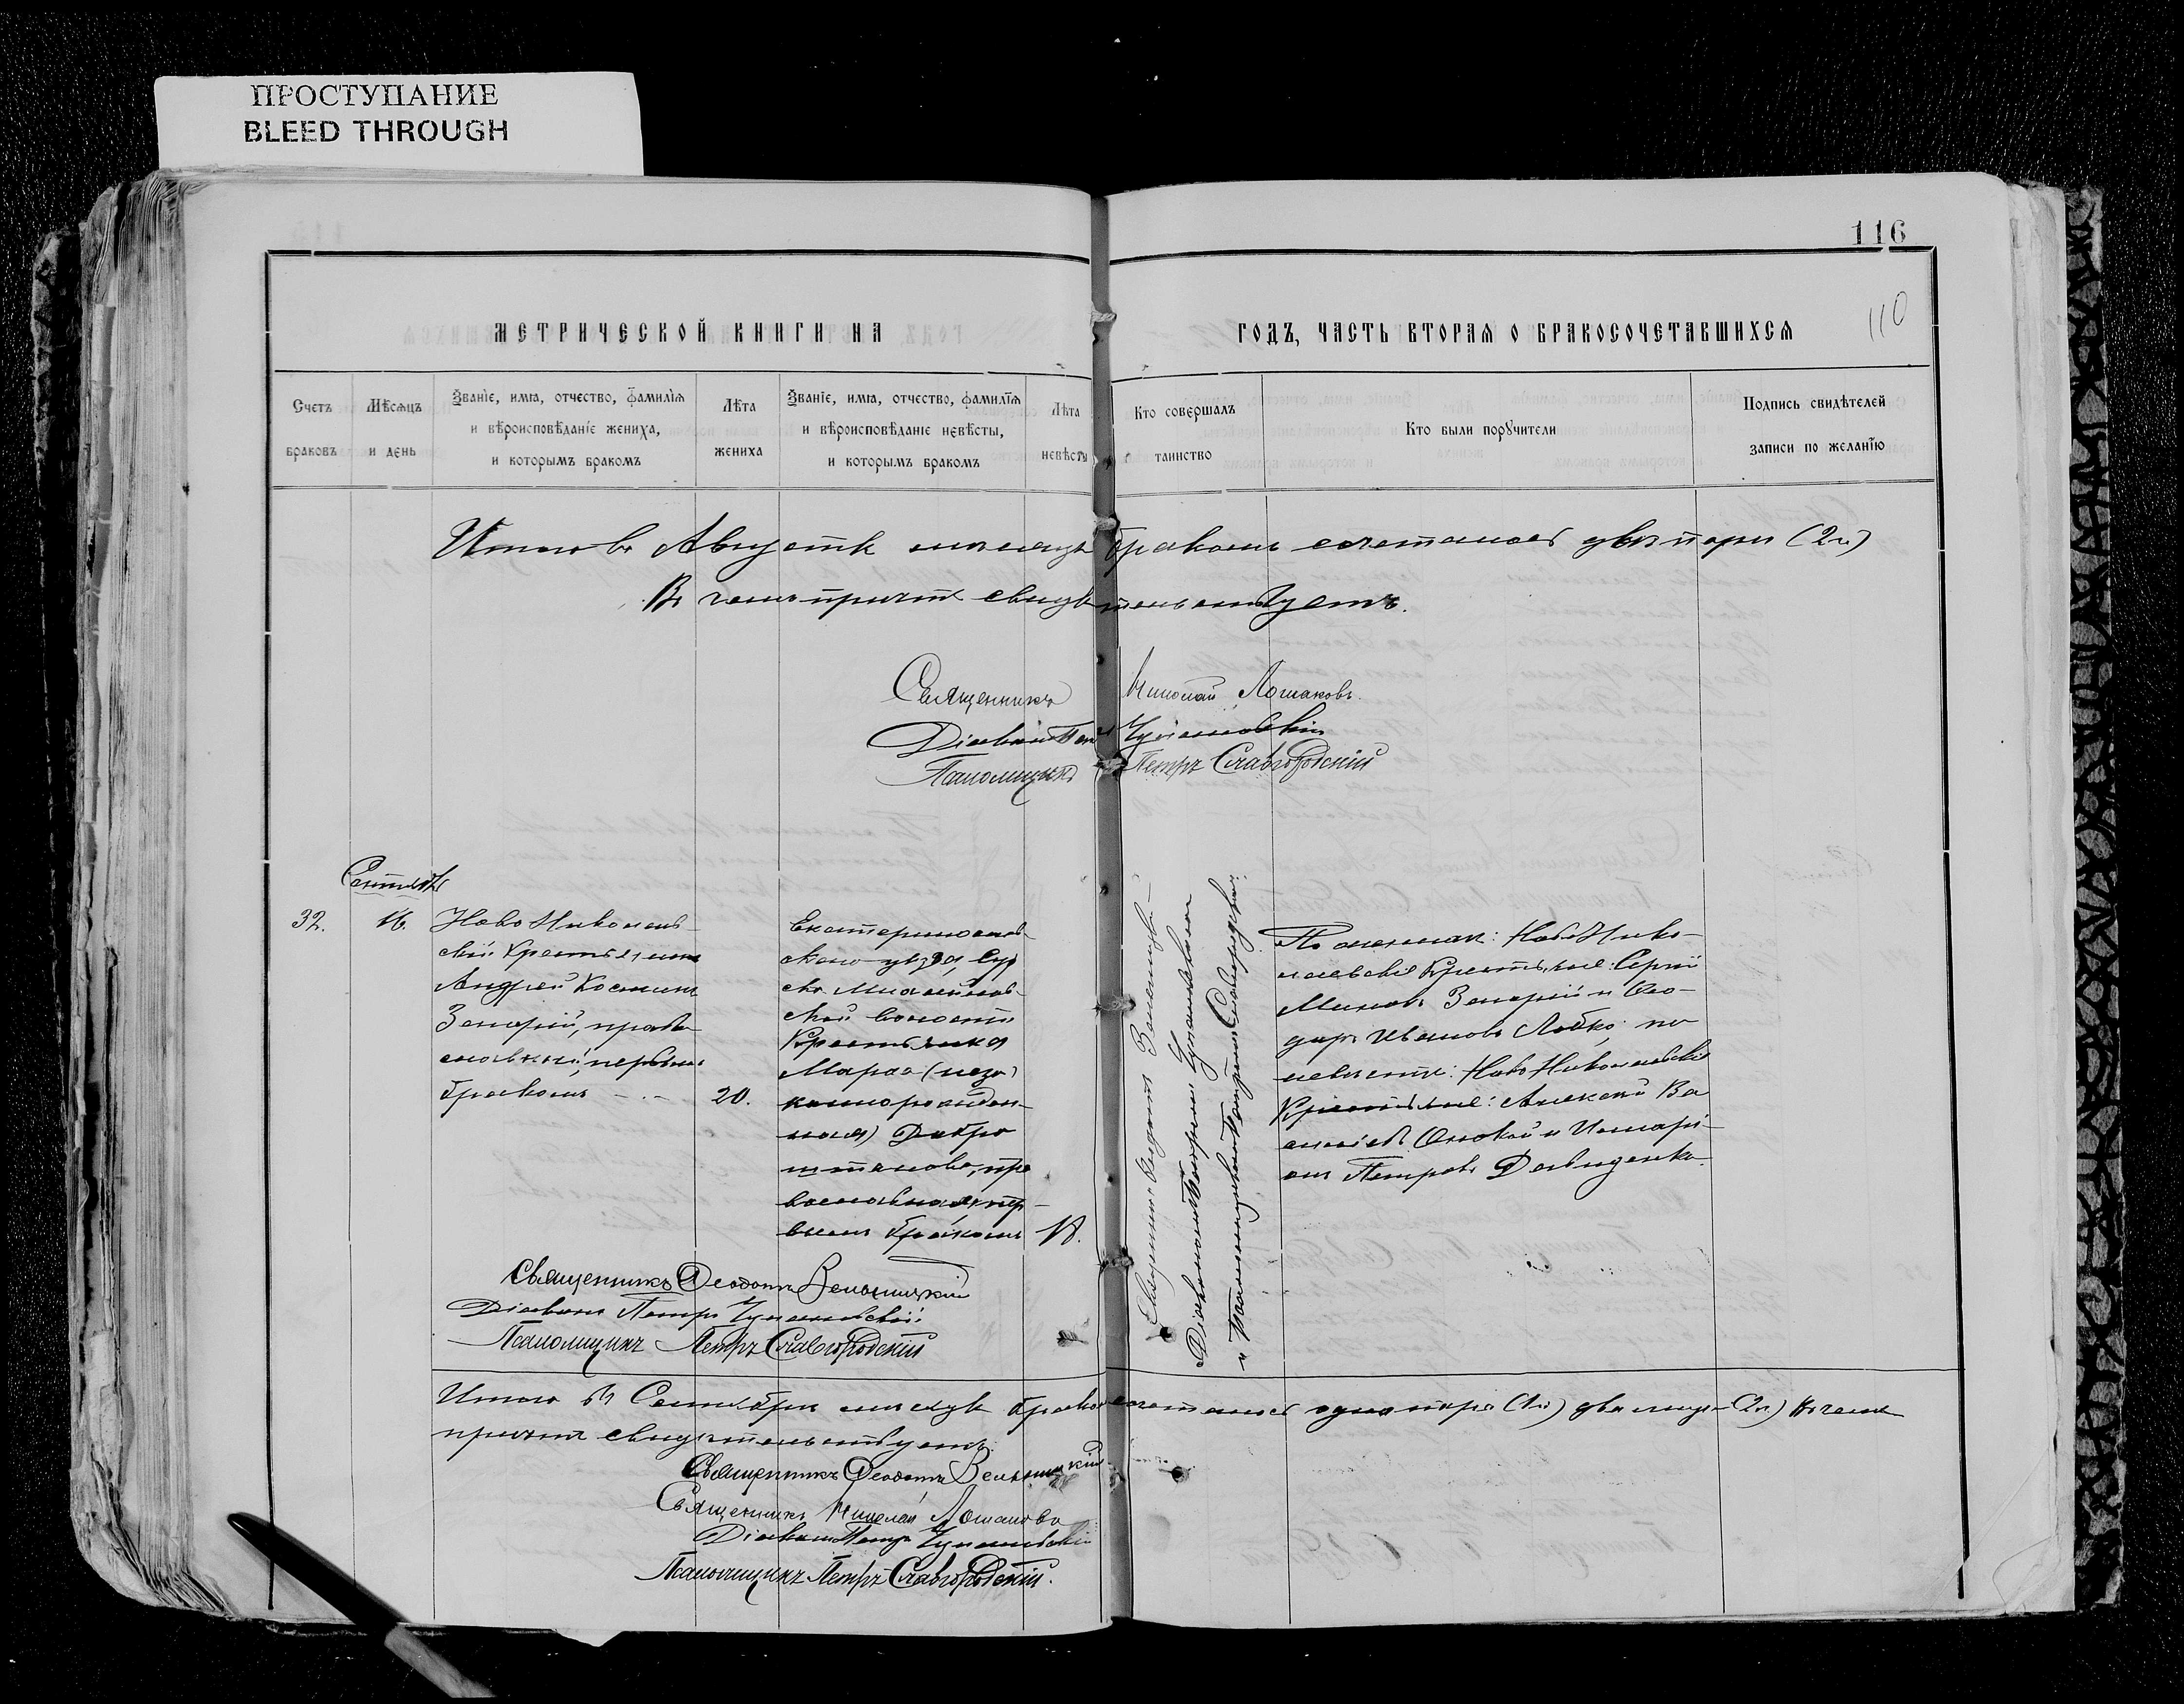 ПРОСТУПАНИЕ
BLEED THROUGH
116
110
МЕТРИЧЕСКОЙ КНИГИ НА
ГОДЪ, ЧАСТЬ ВТОРАЯ О БРАКОСОЧЕТАВШИХСЯ
Счетъ браковъ
Мѣсяцъ и день
Званіе, имя, отчество, фамилія
и вѣроисповѣданіе жениха,
и которымъ бракомъ
Лѣта жениха
Званіе, имя, отчество, фамилія
и вѣроисповѣданіе невѣсты,
и которымъ бракомъ
Лѣта невѣсты
Кто совершалъ таинство
Кто были поручители
Подпись свидѣтелей
записи по желанію
Итого въ Августѣ мѣсяцѣ бракомъ сочеталось двѣ пары (2п)
Въ чемъ причтъ свидѣтельствуетъ.
Священникъ Николай Лошаковъ.
Діаконъ Петръ
Псаломщикъ Петръ Славгородскій
Сентябрь
32.
16.
Ново Николаев-
скій Крестьянинъ
Андрей Косминъ
, право
славный, первымъ
бракомъ
20.
Екатеринослав-
скаго уѣзда, Сур
ско Михайлов-
ской волости
Крестьянка
Марѳа (неза
коннорожден-
ная)
, пра
вославная, пер
вымъ бракомъ
18.
Священникъ Ѳеодотъ
Діакономъ Петромъ
и Псаломщикомъ Петромъ Славгородскимъ.
По женихѣ: Ново Нико-
лаевскіе Крестьяне: Сергій
Миновъ и Ѳео-
доръ Ивановъ Лобко; по
невѣстѣ: Ново Николаевскіе
Крестьяне: Алексѣй Ва
сильевъ и Илларі-
онъ Петровъ Давиденко.
Священникъ Ѳеодотъ
Діаконъ Петръ
Псаломщикъ Петръ Славгородскій
Итого въ Сентябрѣ мѣсяцѣ бракомъ сочеталось одна пара (1п) два лица (2л) Въ чемъ
причтъ свидѣтельствуетъ:
Священникъ Ѳеодотъ
Священникъ Николай Лошаковъ
Діаконъ Петръ
Псаломщикъ Петръ Славгородскій.